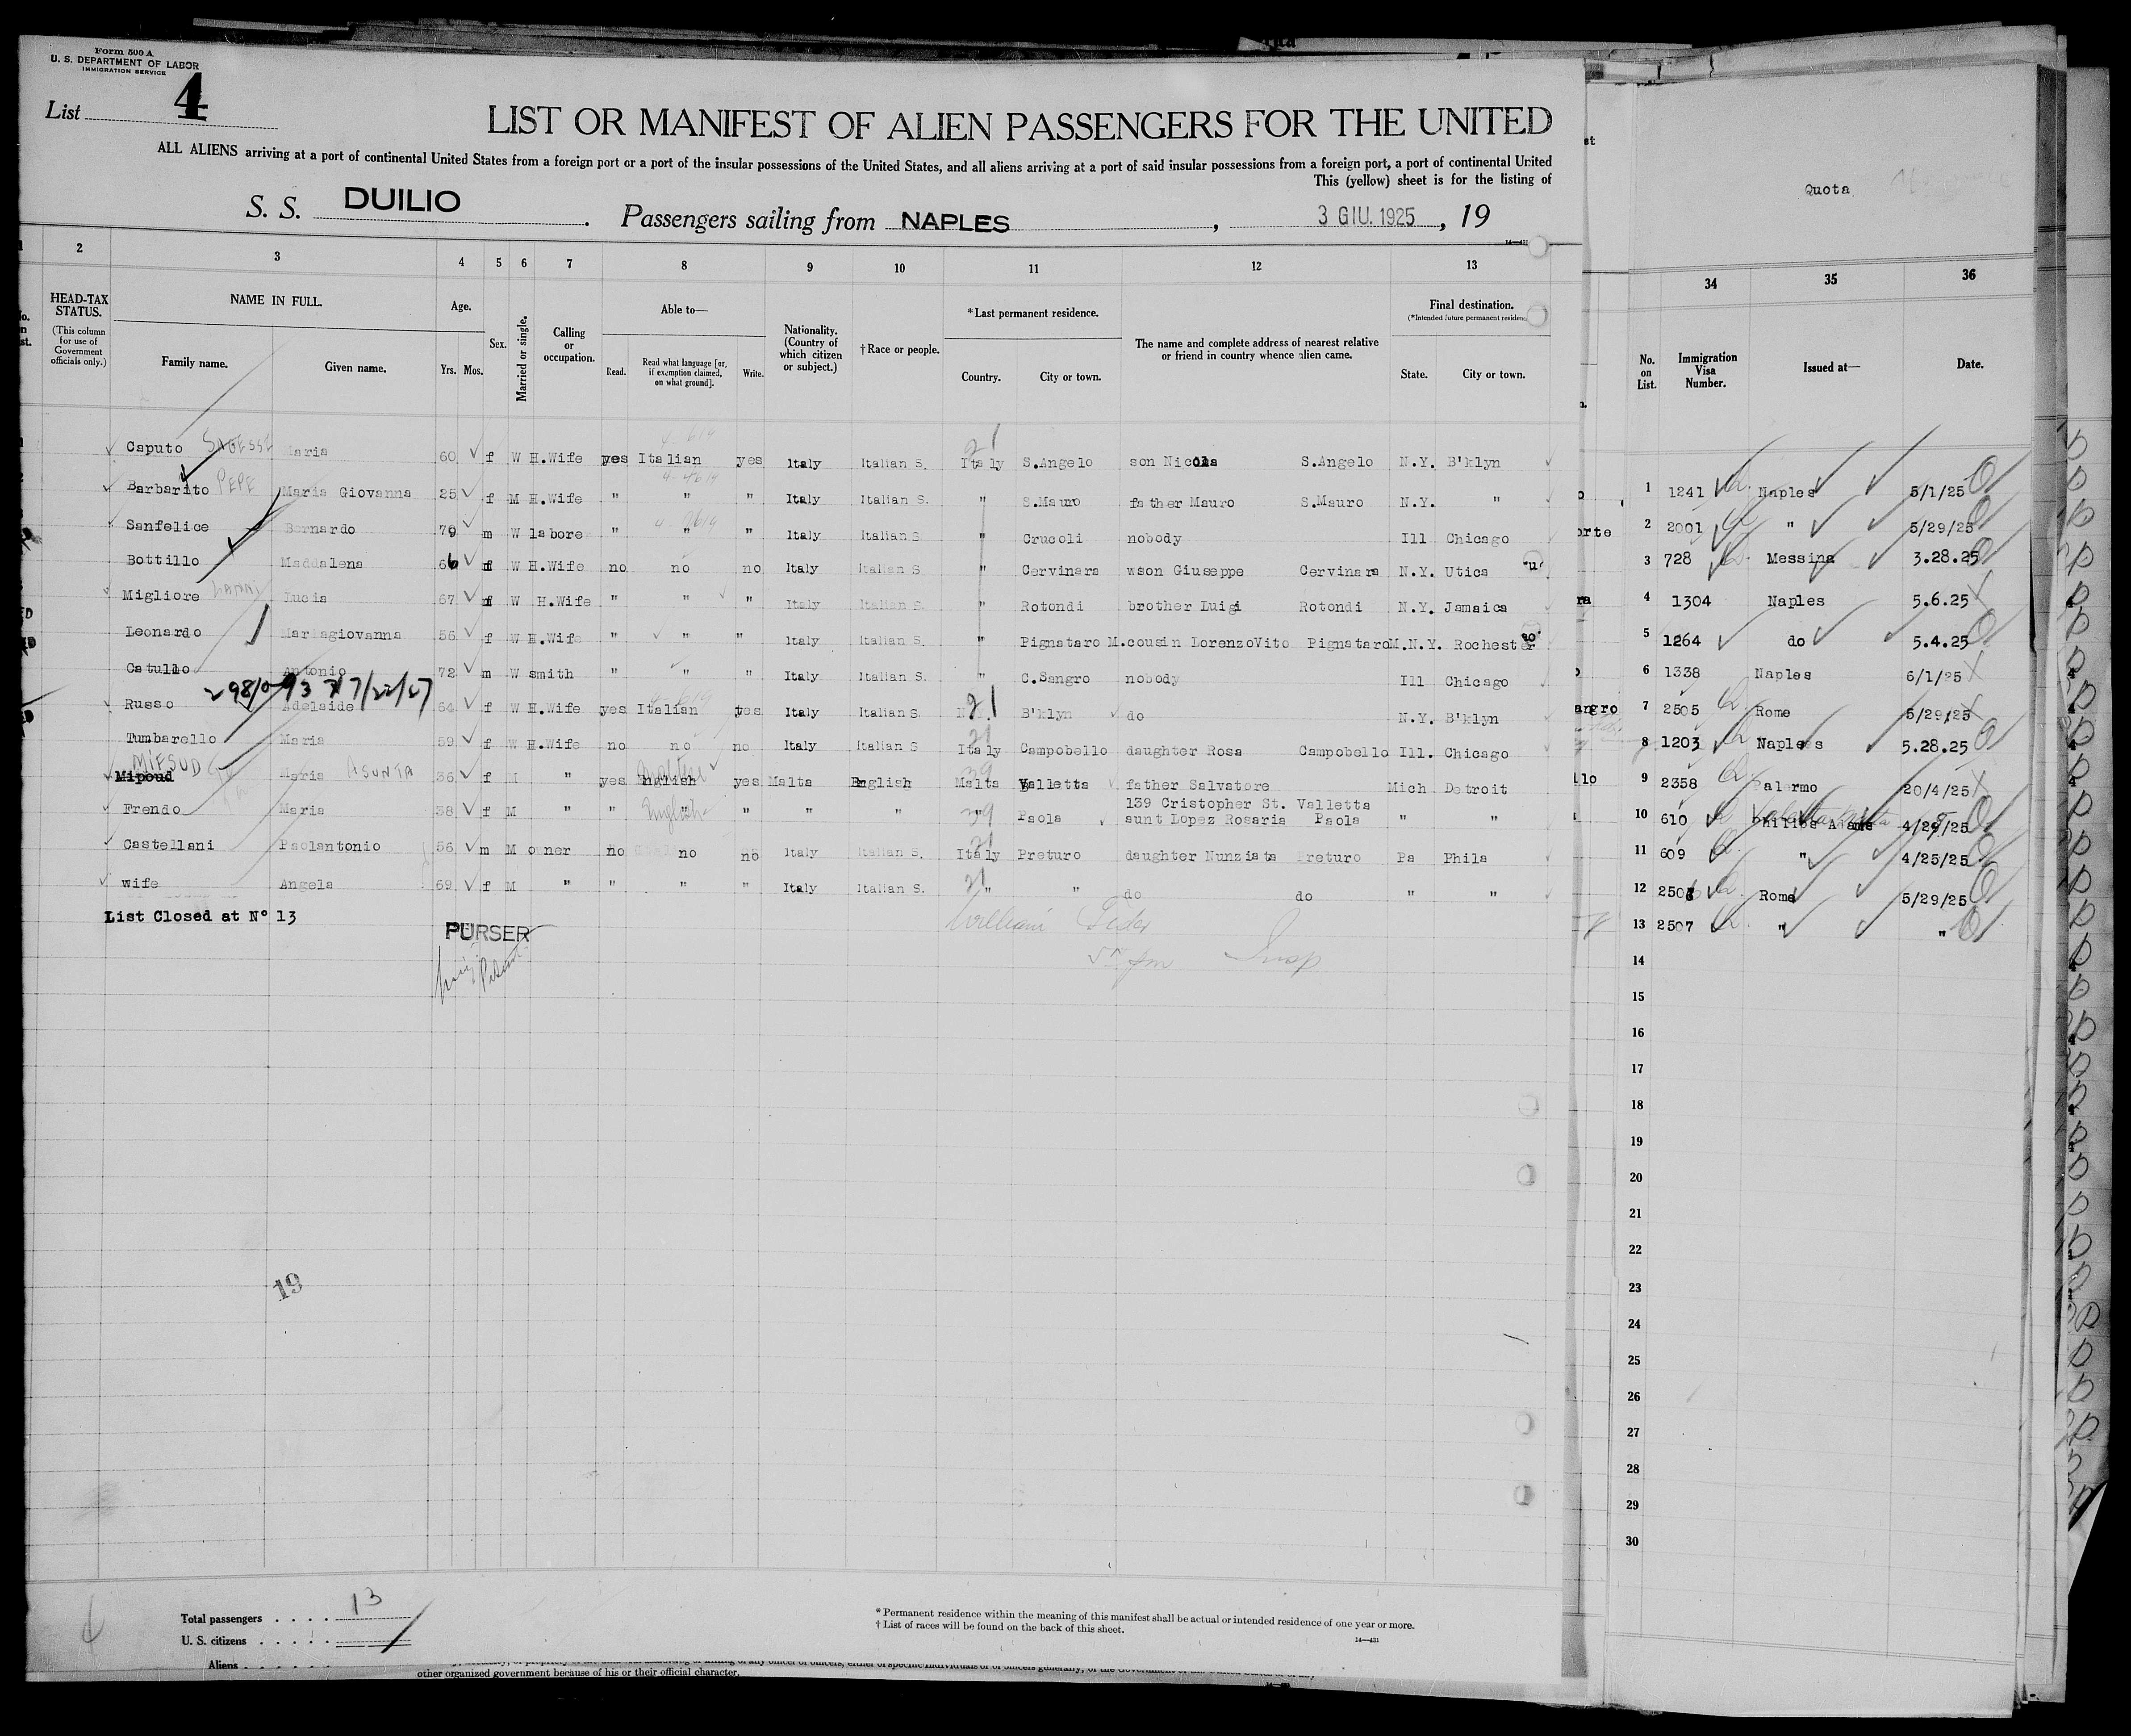 Form 500 A
U. S. DEPARTMENT OF LABOR
IMMIGRATION SERVICE
List 4
LIST OR MANIFEST OF ALIEN PASSENGERS FOR THE UNITED
ALL ALIENS arriving at a port of continental United States from a foreign port or a port of the insular possessions of the United States, and all aliens arriving at a port of said insular possessions from a foreign port, a port of continental United
This (yellow) sheet is for the listing of
S. S. DUILIO. Passengers sailing from NAPLES, 3 GIU. 1925, 19
2 3 4 5 6 7 8 9 10 11 12 13
HEAD-TAX STATUS. (This column for use of Government officials only.)
NAME IN FULL. Family name. Given name.
Age. Yrs. Mos.
Sex.
Married or single.
Calling or occupation.
Able to— Read. Read what language [or, if exemption claimed, on what ground]. Write.
Nationality. (Country of which citizen or subject.)
†Race or people.
*Last permanent residence. Country. City or town.
The name and complete address of nearest relative or friend in country whence alien came.
Final destination. (*Intended future permanent residence) State. City or town.
Caputo Maria 60 f W H.Wife yes Italian yes Italy Italian S. Italy S.Angelo son Nicola S.Angelo N.Y. B'klyn
Barbarito PEPE Maria Giovanna 25 f M H.Wife " " " Italy Italian S. " S.Mauro father Mauro S.Mauro N.Y. "
Sanfelice Bernardo 79 m W labore " " " Italy Italian S " Crucoli nobody Ill Chicago
Bottillo Maddalena 66 f W H.Wife no no no Italy Italian S " Cervinara wson Giuseppe Cervinara N.Y. Utica
Migliore Lucia 67 f W H.Wife " " " Italy Italian S. " Rotondi brother Luigi Rotondi N.Y. Jamaica
Leonardo Mariagiovanna 56 f W H.Wife " " " Italy Italian S. " Pignataro M.cousin LorenzoVito PignataroM.N.Y. Rochester
Catullo Antonio 72 m W smith " " " Italy Italian S. " C.Sangro nobody Ill Chicago
7/22/27
Russo Adelaide 64 f W H.Wife yes Italian yes Italy Italian S. 21 B'klyn do N.Y. B'klyn
Tumbarello Maria 59 f W H.Wife no no no Italy Italian S Italy Campobello daughter Rosa Campobello Ill. Chicago
MIFSUD
Mipoud Maria ASUNTA 36 f M " yes English yes Malta English Malta Valletta father Salvatore Mich Detroit
139 Cristopher St. Valletta
Frendo Maria 38 f M " " English " " " " Paola aunt Lopez Rosaria Paola " "
Castellani Paolantonio 56 m M owner no no no Italy Italian S. Italy Preturo daughter Nunziata Preturo Pa Phila
wife Angela 69 f M " " " " Italy Italian S. " " do do " "
List Closed at N° 13
PURSER
19
Total passengers . . . . 13
U. S. citizens . . . . .
Aliens . . . . . . .
* Permanent residence within the meaning of this manifest shall be actual or intended residence of one year or more.
† List of races will be found on the back of this sheet.
14—431
other organized government because of his or their official character.
Quota
34 35 36
No. on List. Immigration Visa Number. Issued at— Date.
1 1241 Naples 5/1/25
2 2001 " 5/29/25
3 728 Messina 3.28.25
4 1304 Naples 5.6.25
5 1264 do 5.4.25
6 1338 Naples 6/1/25
7 2505 Rome 5/29/25
8 1203 Naples 5.28.25
9 2358 Palermo 20/4/25
10 610 Philips Adams 4/28/25
11 609 " 4/25/25
12 2506 Rome 5/29/25
13 2507 " "
14
15
16
17
18
19
20
21
22
23
24
25
26
27
28
29
30